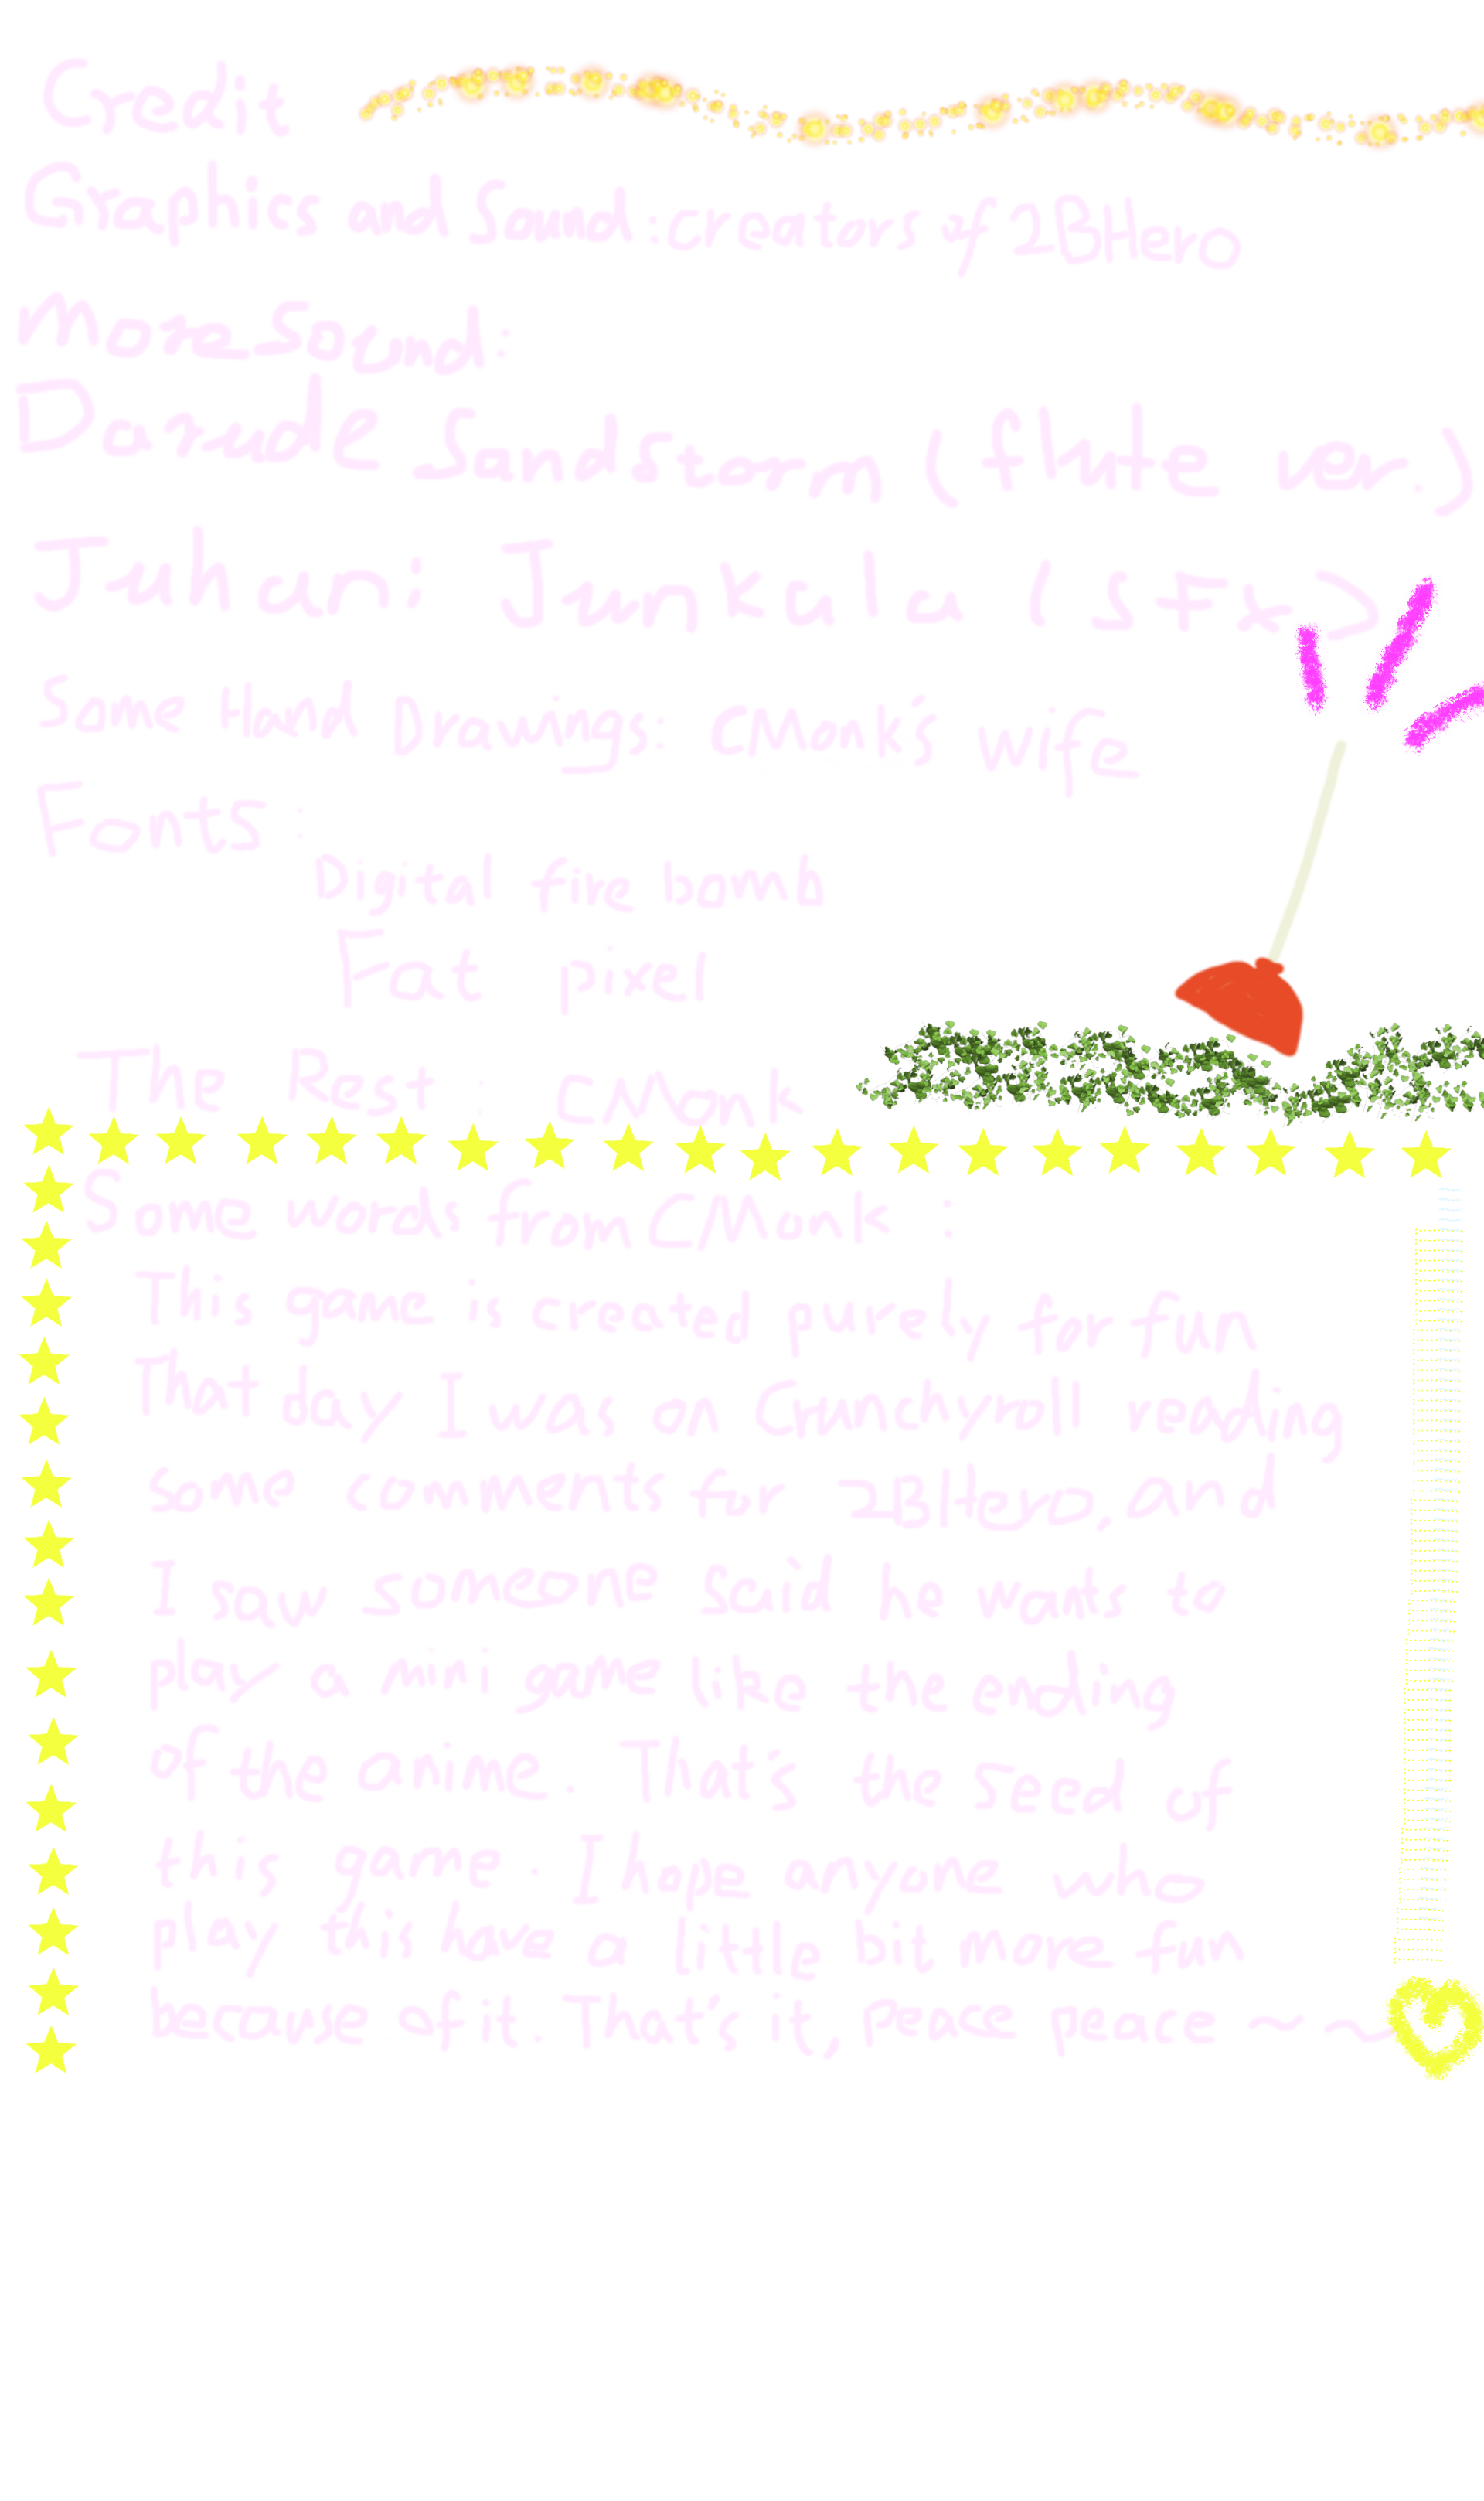 Credit
Graphics and Sound: creators of 2BHero
More Sound:
Darude Sandstorm (flute ver.)
Juhani Junkala (SFX)
Some Hand Drawings: CMonk's wife
Fonts:
Digital fire bomb
Fat pixel
The Rest: CMonk
Some words from CMonk:
This game is created purely for fun
That day I was on Crunchyroll reading
some comments for 2BHero, and
I saw someone said he wants to
play a mini game like the ending
of the anime. That's the seed of
this game. I hope anyone who
play this have a little bit more fun
because of it. That's it, peace peace ~ ~